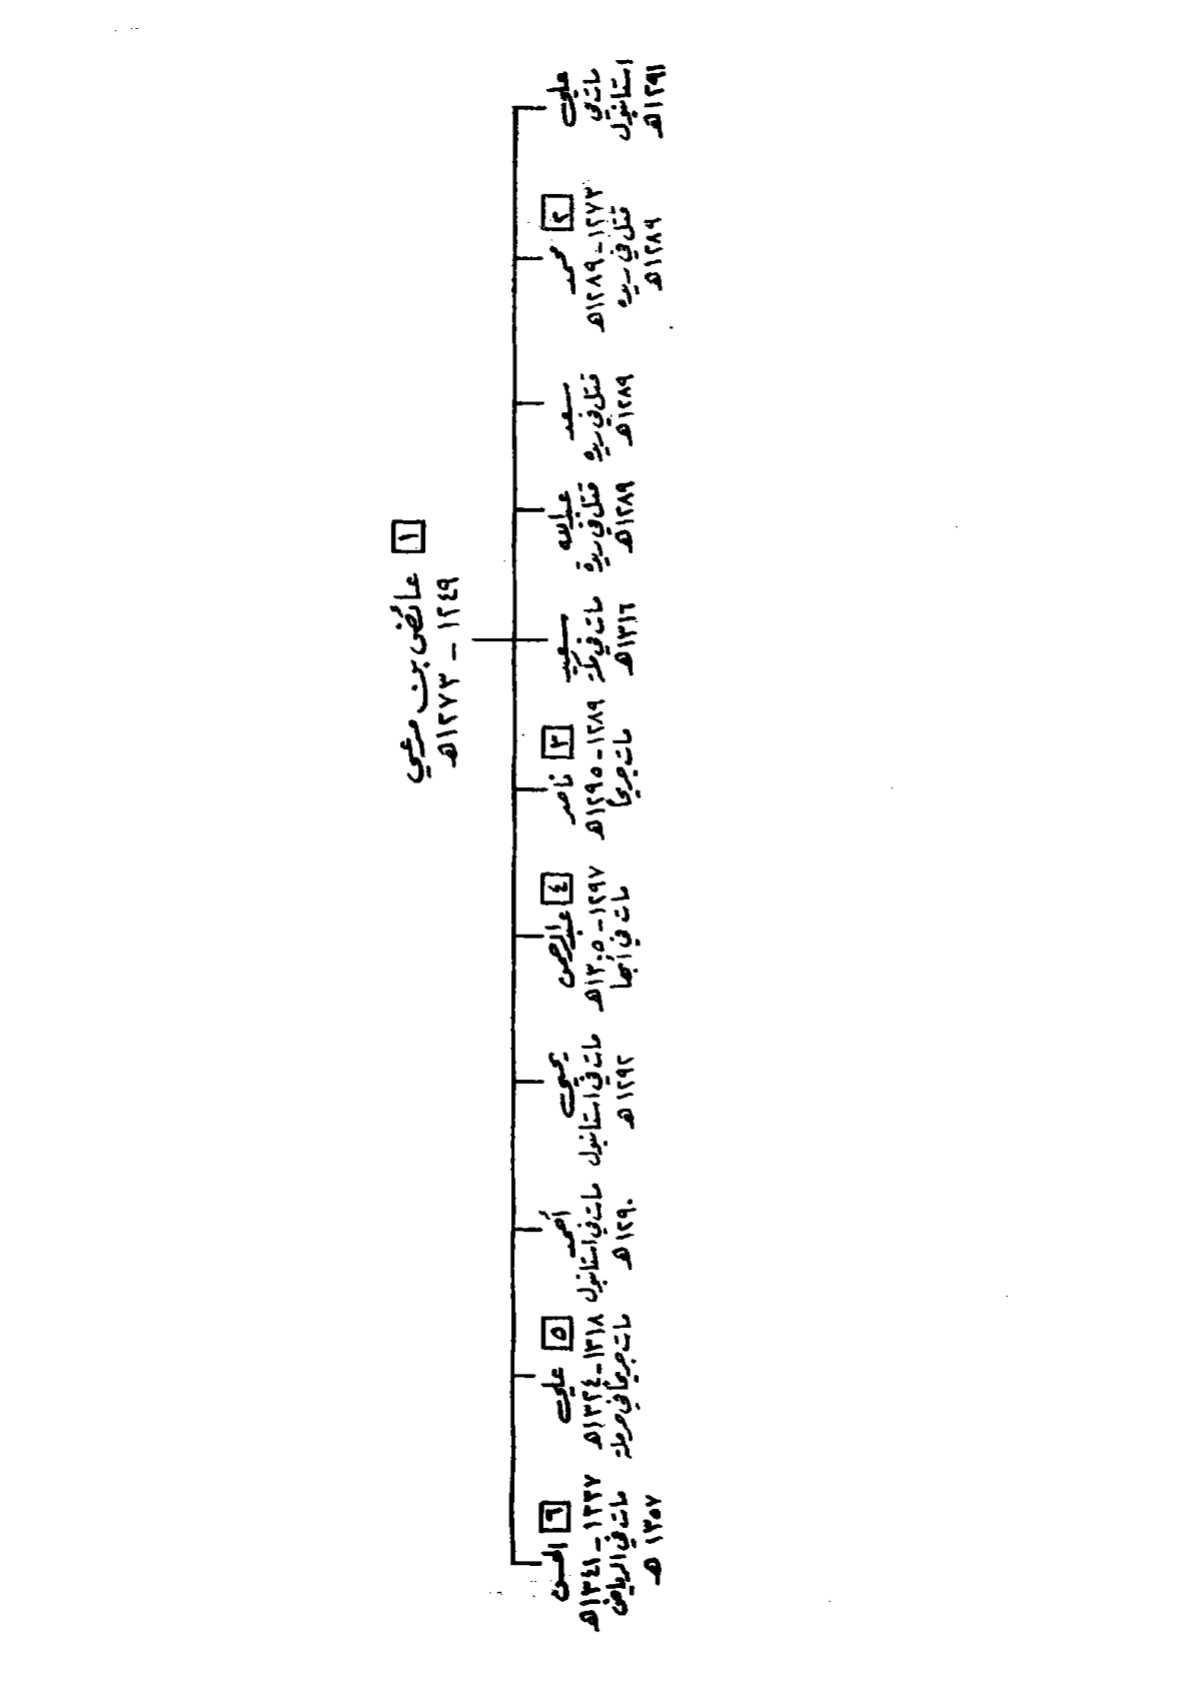 عائض بن مرعي ١
١٢٤٩ - ١٢٧٣هـ
علي
مات في
استانبول
١٢٩١هـ
محمد ٢
١٢٧٣ - ١٢٨٩هـ
قتل في ريده
١٢٨٩هـ
سعد
قتل في ريده
١٢٨٩هـ
عبدالله
قتل في ريدة
١٢٨٩هـ
سعيد
مات في مكة
١٣١٦هـ
ناصر ٣
١٢٨٩ - ١٢٩٥هـ
مات جريحاً
عبدالرحمن ٤
١٢٩٧ - ١٣٠٥هـ
مات في أبها
يحيى
مات في استانبول
١٢٩٢هـ
أحمد
مات في استانبول
١٢٩٠هـ
علي ٥
١٣١٨ - ١٣٢٤هـ
مات جريحاً في حرملة
الحسن ٦
١٣٣٧ - ١٣٤١هـ
مات في الرياض
١٣٥٧هـ